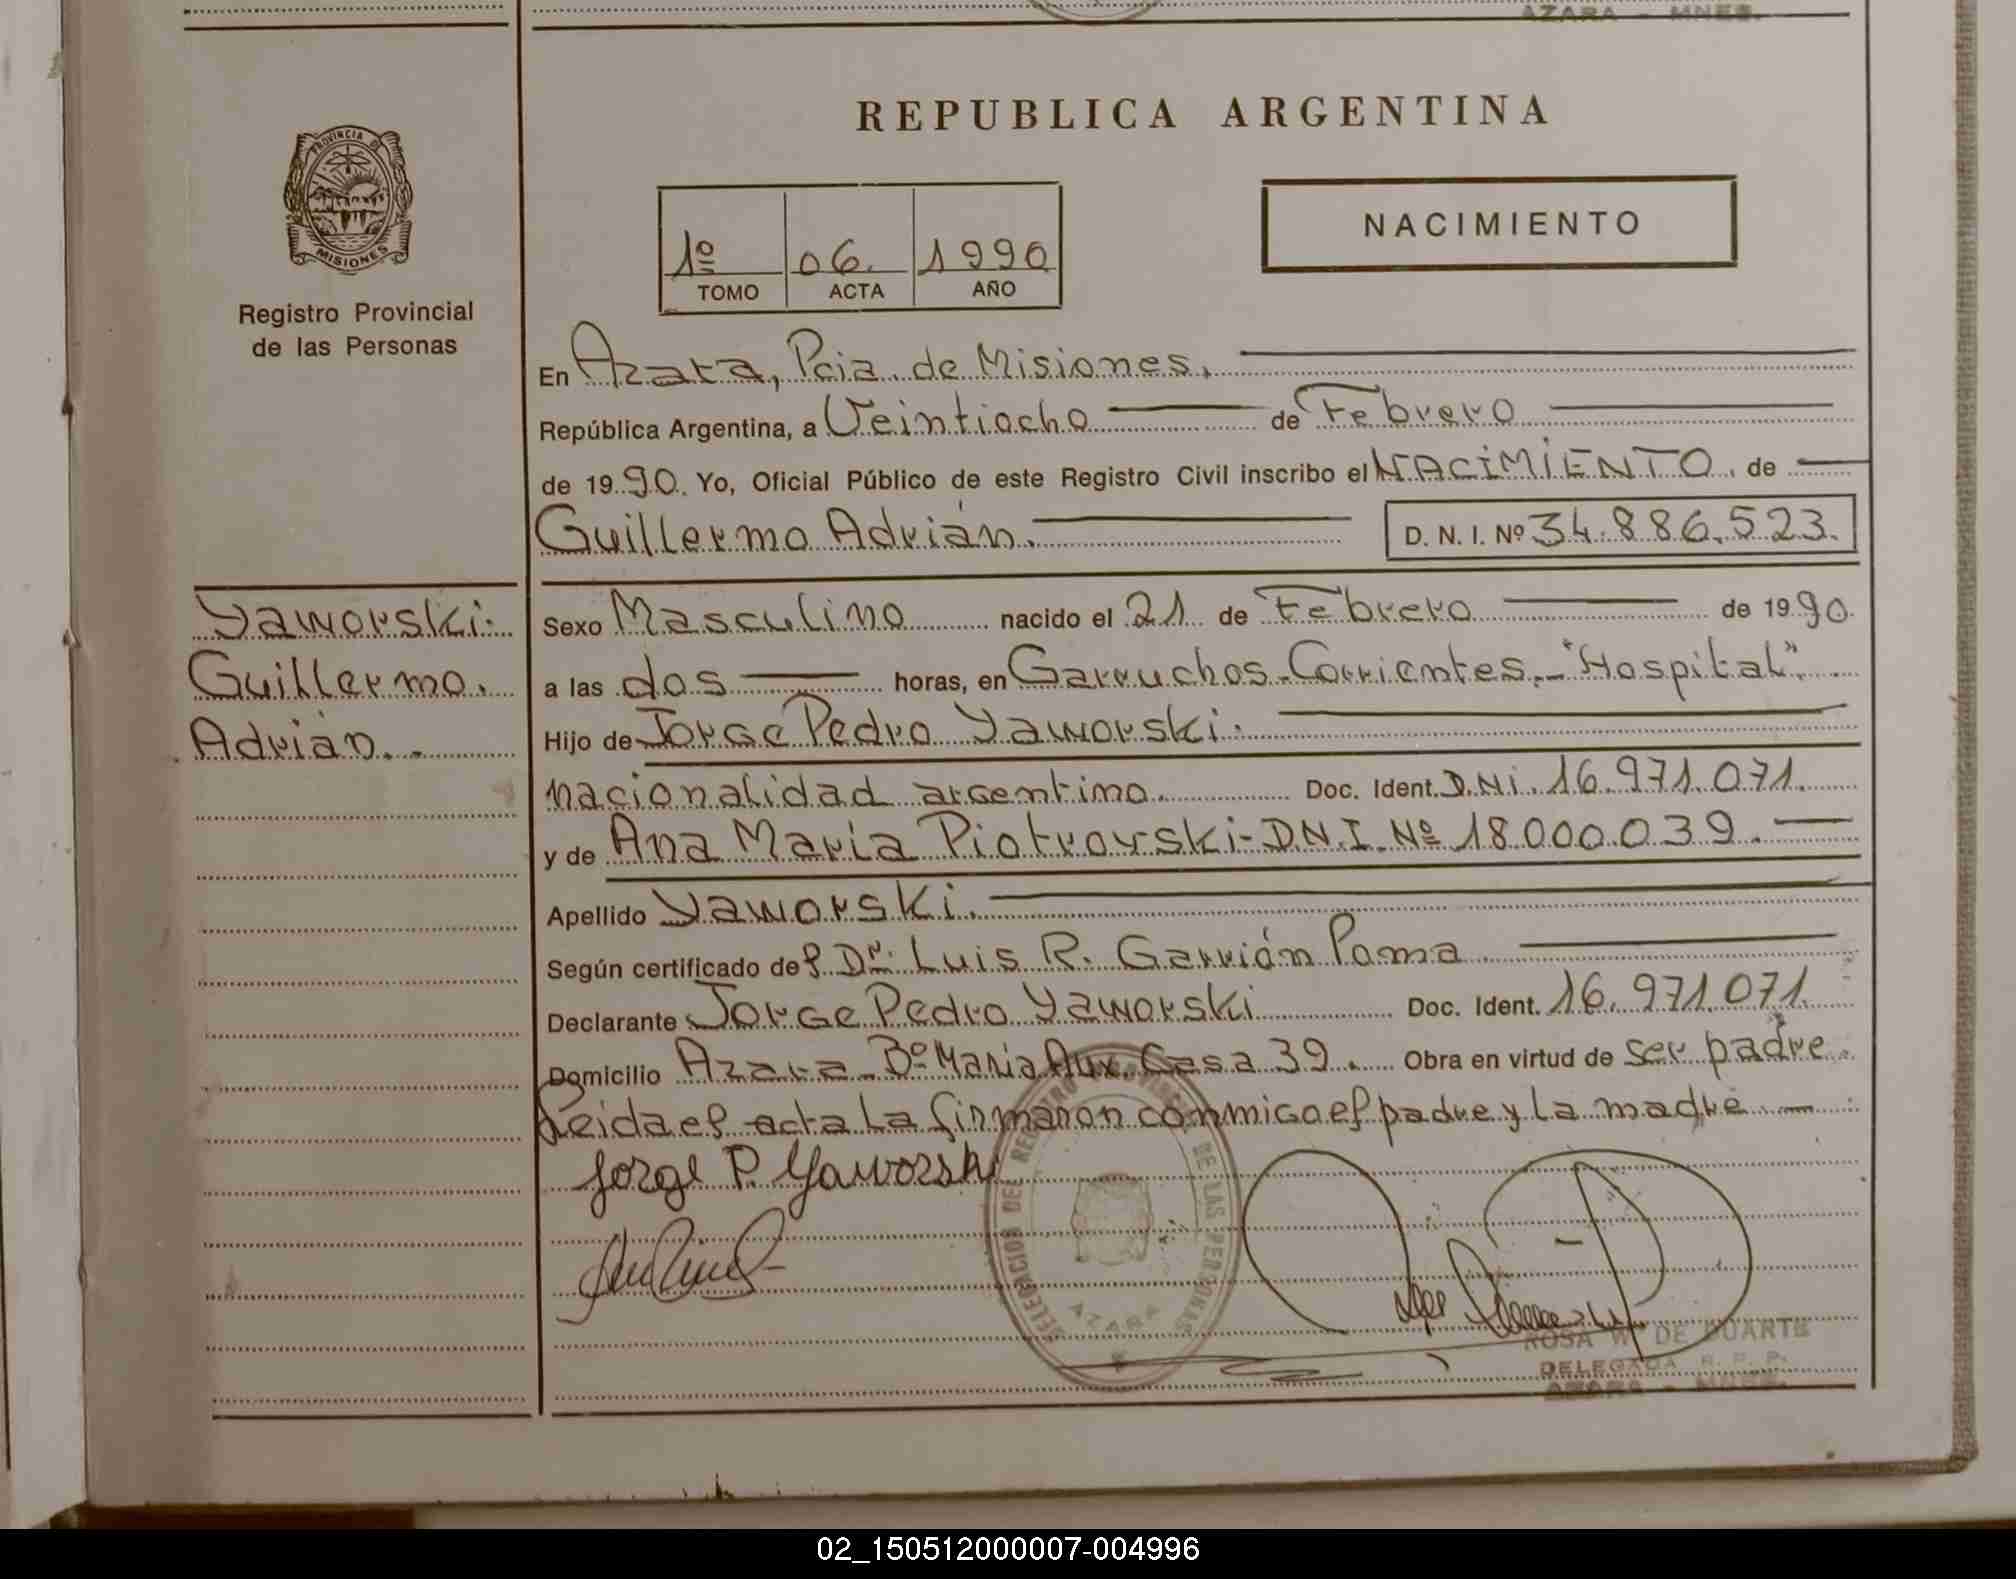 AZARA - MNES.
REPUBLICA ARGENTINA
PROVINCIA DE
MISIONES
Registro Provincial
de las Personas
1º 06. 1990
TOMO ACTA AÑO
NACIMIENTO
En Azara, Pcia. de Misiones.
República Argentina, a Veintiocho de Febrero
de 1990. Yo, Oficial Público de este Registro Civil inscribo el NACIMIENTO. de
Guillermo Adrián. D. N. I. Nº 34.886.523.
Yaworski.
Guillermo.
Adrián..
Sexo Masculino nacido el 21 de Febrero de 1990.
a las dos horas, en Garruchos-Corrientes.-"Hospital".
Hijo de Jorge Pedro Yaworski.
nacionalidad argentino. Doc. Ident. D.N.i. 16.971.071.
y de Ana María Piotrowski-D.N.I. Nº 18.000.039.
Apellido Yaworski.
Según certificado del Dr. Luis R. Garrión Poma
Declarante Jorge Pedro Yaworski Doc. Ident. 16.971.071.
Domicilio Azara-Bº María Aux. Casa 39. Obra en virtud de ser padre
Leida el acta la firmaron conmigo el padre y la madre
Jorge P. Yaworski
DELEGACION DEL REGISTRO PROVINCIAL DE LAS PERSONAS
AZARA
ROSA W. DE DUARTE
DELEGADA R. P. P.
AZARA - MNES.
02_150512000007-004996